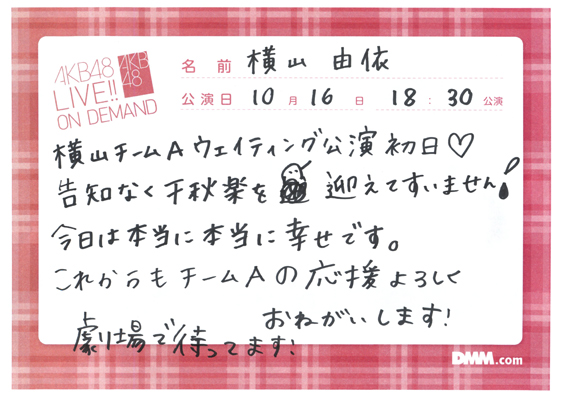 AKB48
LIVE!!
ON DEMAND
AKB
48
名前 横山 由依
公演日 10月16日 18:30公演
横山チームAウェイティング公演初日♡
告知なく千秋楽を 迎えてすいません!
今日は本当に本当に幸せです。
これからもチームAの応援よろしく
おねがいします!
劇場で待ってます!
DMM.com